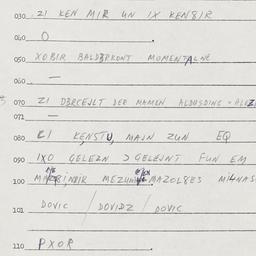 030 ZI KEN MIR UN IX KENSIR
040 O
050 XOBIR BALDERKONT MOMENTALNE
060 —
070 ZI DERCEJLT DEE MAMEN
071 —
080 KENSTU, MAJN ZUN EQ
090 IXO GELEZN GELEJNT FUN EM
100 MEZUM MAZOLSES MILNAS
101 DOVIC / DOVIDZ / DOVIC
110 PXOR